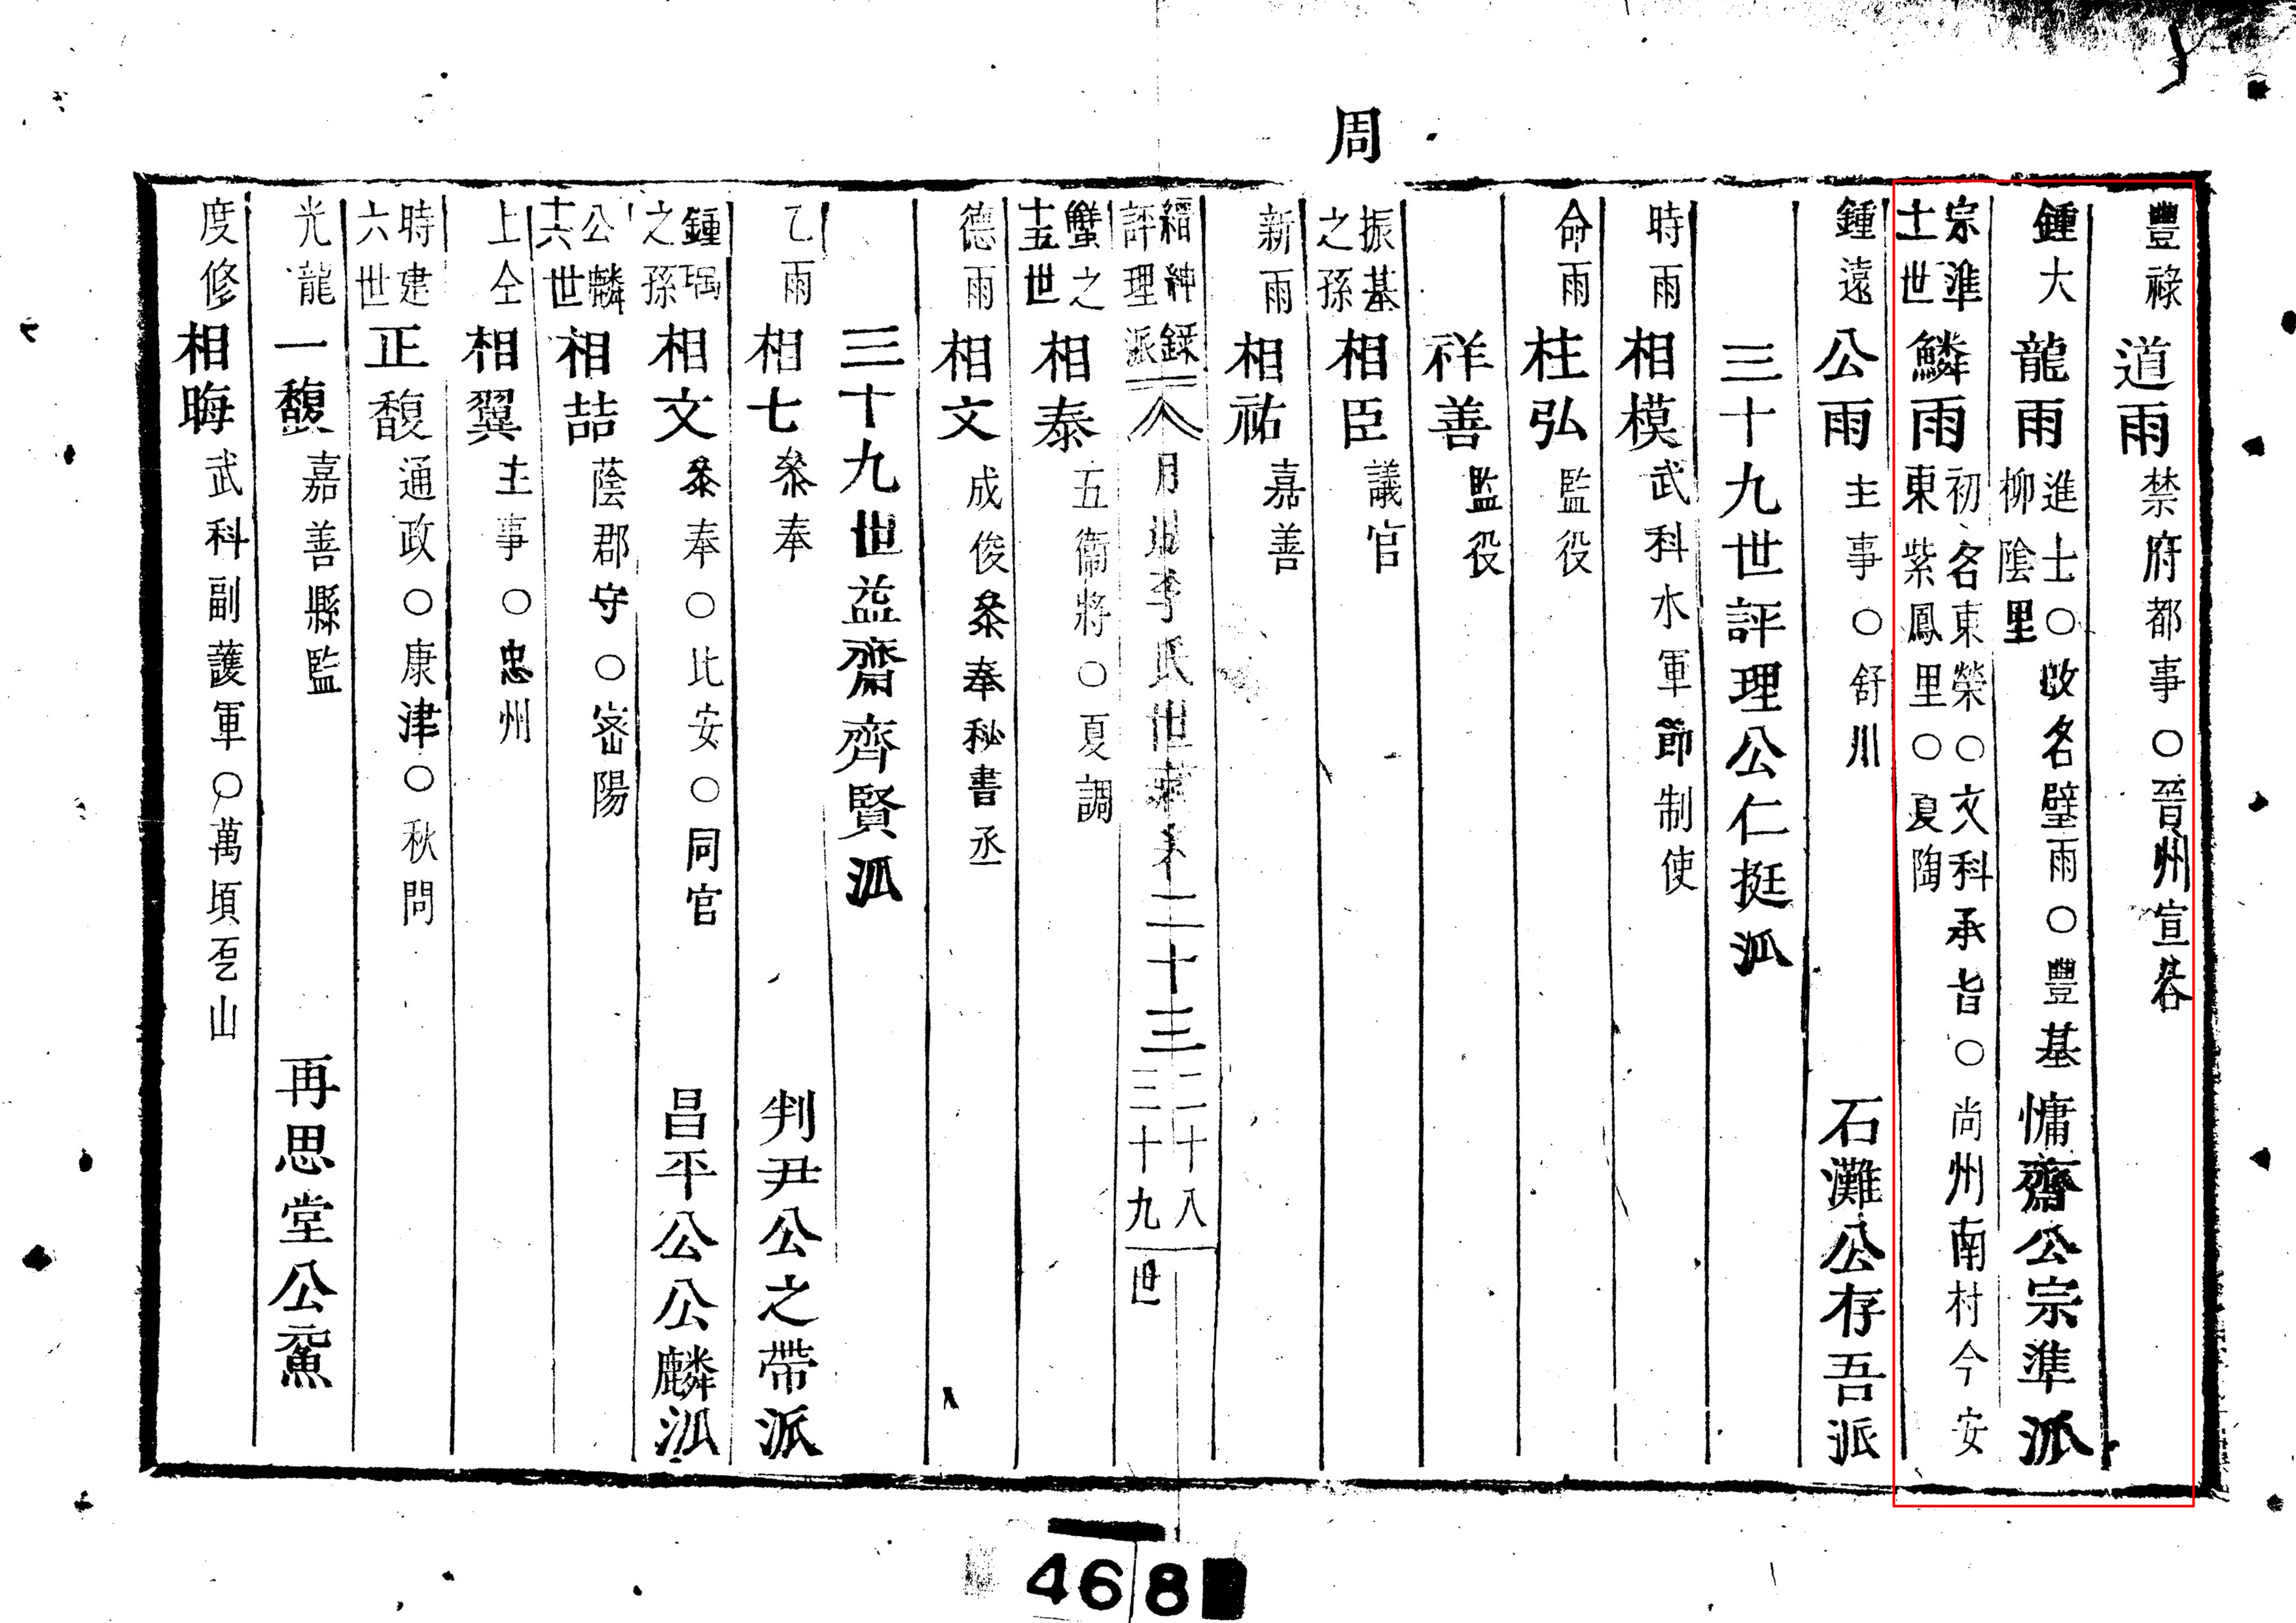 周
豐祿 道雨 禁府都事○晉州宣谷
鍾大 龍雨 進士○改名璧雨○豐基柳陰里 慵齋公宗準派
宗準十一世 鱗雨 初名東榮○文科承旨○尚州南村今安東紫鳳里○夏陶
鍾遠 公雨 主事○舒川 石灘公存吾派
三十九世評理公仁挺派
時雨 相模 武科水軍節制使
命雨 柱弘 監役
祥善 監役
振基之孫 相臣 議官
新雨 相祐 嘉善
縉紳錄評理派 八 月城李氏世 二十三 二十八 三十九世
蟹之十五世 相泰 五衛將○夏調
德雨 相文 成俊叅奉秘書丞
三十九世益齋齊賢派
乙雨 相七 叅奉 判尹公之帶派
鍾瑀之孫 相文 叅奉○比安○同官 昌平公公麟派
公麟十六世 相喆 蔭郡守○密陽
上仝 相翼 主事○忠州
時建六世 正馥 通政○康津○秋問
光龍 一馥 嘉善縣監 再思堂公黿
度修 相晦 武科副護軍○萬頃 山
468